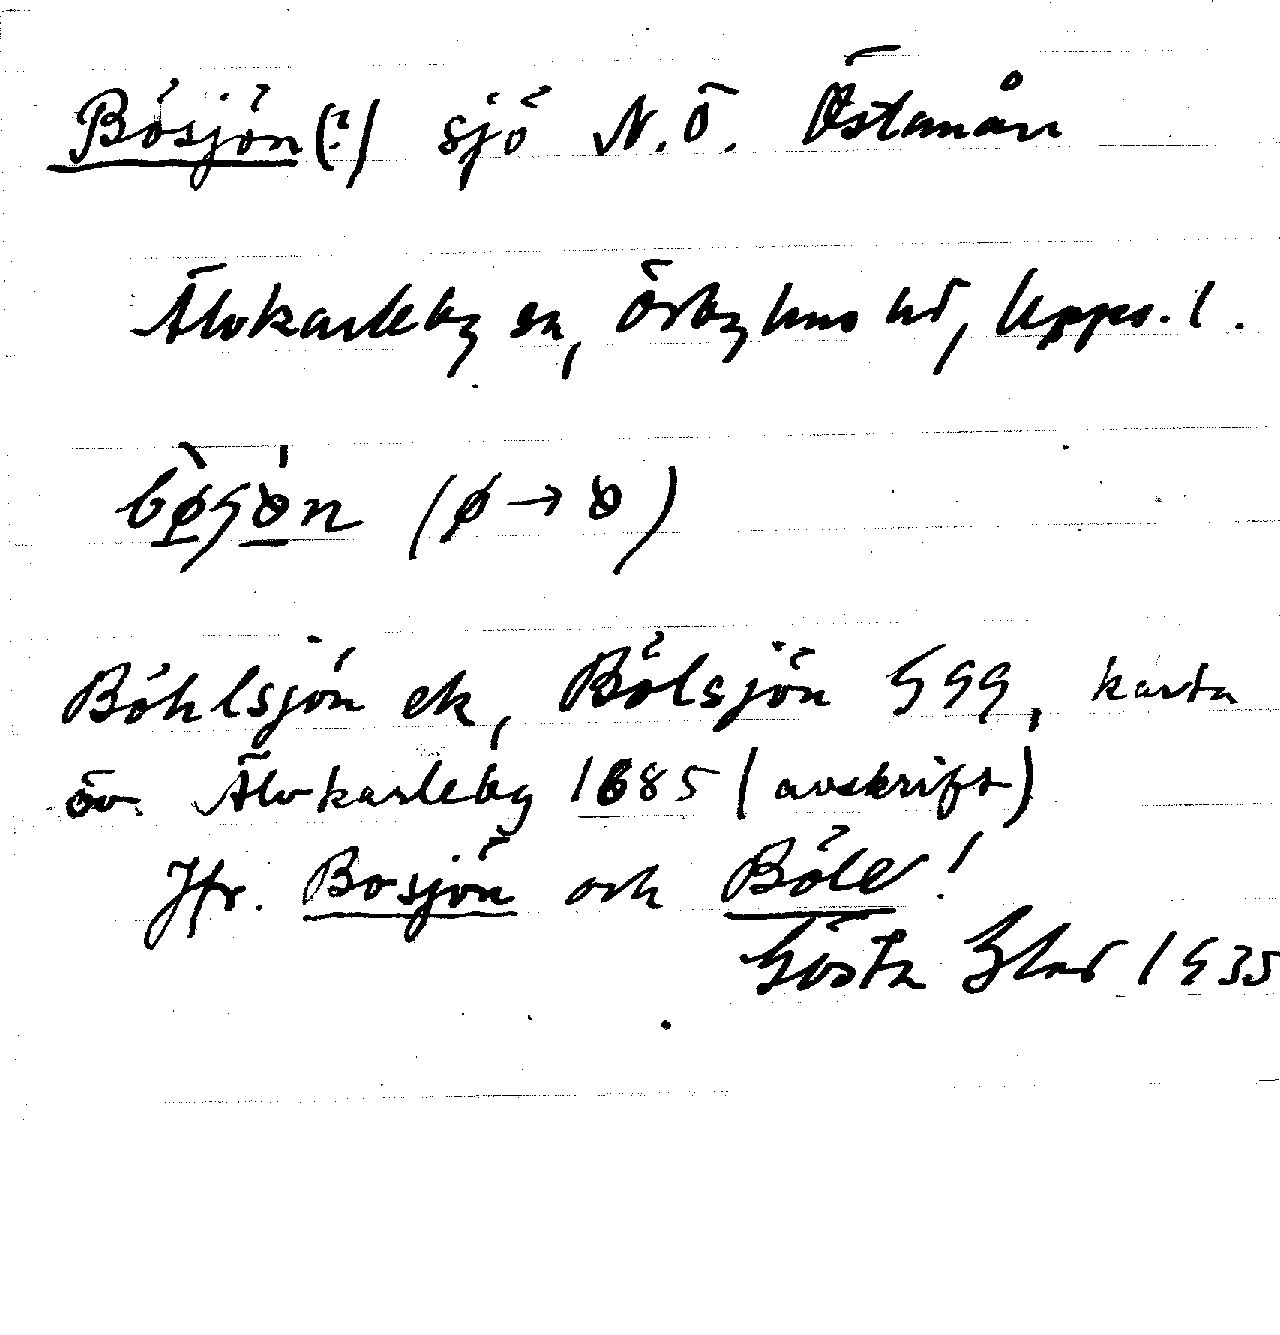 Bösjön (?) sjö N.Ö. Östanån
Älvkarleby sn, Örbyhus hd, Upps. l.
Böhlsjön ek, Bölsjön GGG, karta
öv. Älvkarleby 1685 (avskrift)
Jfr. Bosjön och Böle!
Gösta 1935